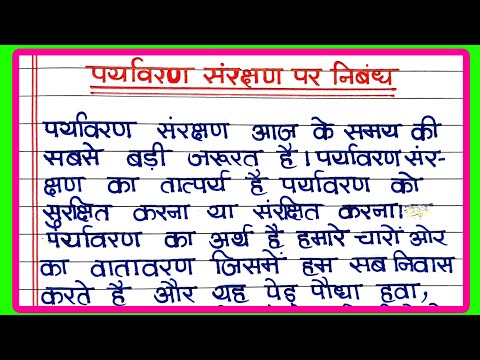 पर्यावरण संरक्षण पर निबंध
पर्यावरण संरक्षण आज के समय की
सबसे बड़ी जरूरत है। पर्यावरण संर-
क्षण का तात्पर्य है पर्यावरण को
सुरक्षित करना या संरक्षित करना।
पर्यावरण का अर्थ है हमारे चारों ओर
का वातावरण जिसमें हम सब निवास
करते है और यह पेड़ पौधा हवा,